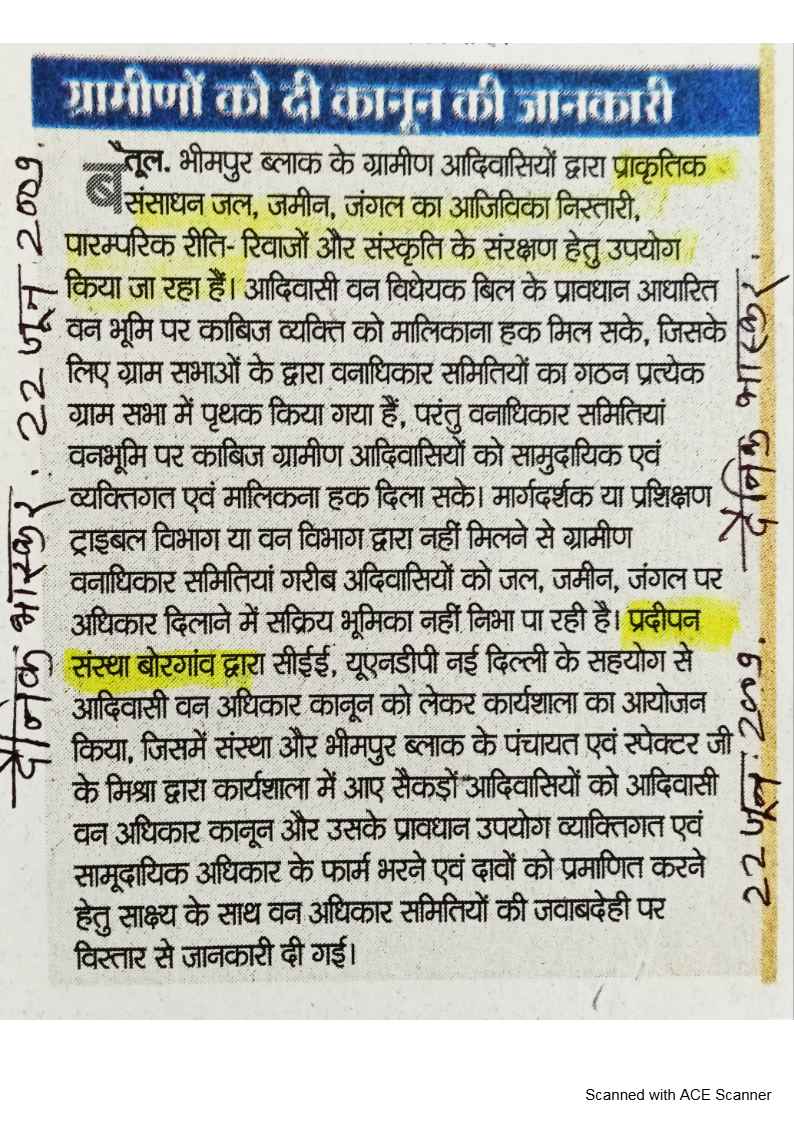 ग्रामीणों को दी कानून की जानकारी
बैतूल. भीमपुर ब्लाक के ग्रामीण आदिवासियों द्वारा प्राकृतिक
संसाधन जल, जमीन, जंगल का आजिविका निस्तारी,
पारम्परिक रीति- रिवाजों और संस्कृति के संरक्षण हेतु उपयोग
किया जा रहा हैं। आदिवासी वन विधेयक बिल के प्रावधान आधारित
वन भूमि पर काबिज व्यक्ति को मालिकाना हक मिल सके, जिसके
लिए ग्राम सभाओं के द्वारा वनाधिकार समितियों का गठन प्रत्येक
ग्राम सभा में पृथक किया गया हैं, परंतु वनाधिकार समितियां
वनभूमि पर काबिज ग्रामीण आदिवासियों को सामुदायिक एवं
व्यक्तिगत एवं मालिकना हक दिला सके। मार्गदर्शक या प्रशिक्षण
ट्राइबल विभाग या वन विभाग द्वारा नहीं मिलने से ग्रामीण
वनाधिकार समितियां गरीब अदिवासियों को जल, जमीन, जंगल पर
अधिकार दिलाने में सक्रिय भूमिका नहीं निभा पा रही है। प्रदीपन
संस्था बोरगांव द्वारा सीईई, यूएनडीपी नई दिल्ली के सहयोग से
आदिवासी वन अधिकार कानून को लेकर कार्यशाला का आयोजन
किया, जिसमें संस्था और भीमपुर ब्लाक के पंचायत एवं स्पेक्टर जी
के मिश्रा द्वारा कार्यशाला में आए सैकड़ों आदिवासियों को आदिवासी
वन अधिकार कानून और उसके प्रावधान उपयोग व्याक्तिगत एवं
सामूदायिक अधिकार के फार्म भरने एवं दावों को प्रमाणित करने
हेतु साक्ष्य के साथ वन अधिकार समितियों की जवाबदेही पर
विस्तार से जानकारी दी गई।
दैनिक भास्कर. 22 जून 2009.
दैनिक भास्कर.
22 जून. 2009.
Scanned with ACE Scanner